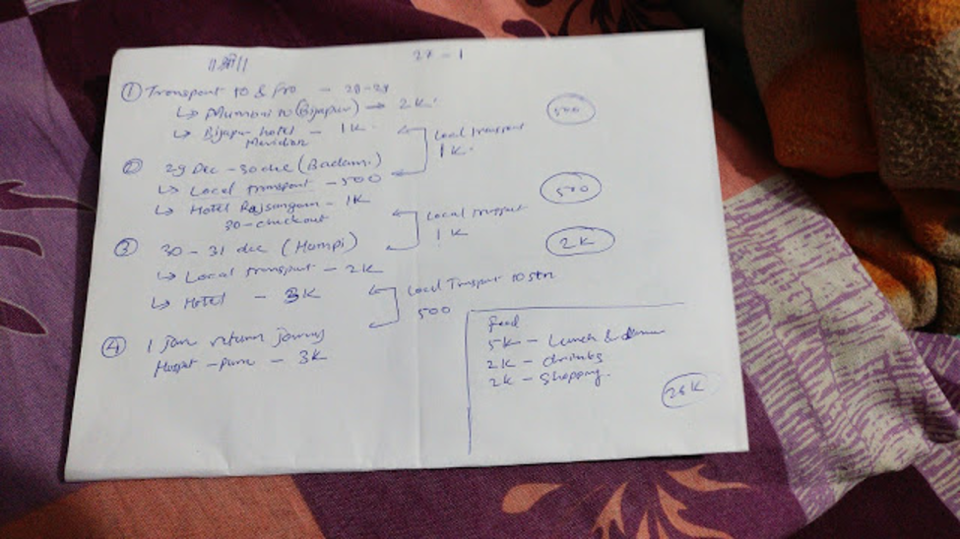 ||श्री||
27 - 1
① Transport to & fro - 28-29
↳ Mumbai to (Bijapur) → 2K.
500
↳ Bijapur hotel - 1K
Meridian
Local transport
1K.
② 29 Dec - 30 dec (Badami)
↳ Local transport - 500
500
↳ Hotel Rajsangam - 1K
30 - checkout
Local transport
1K
③ 30 - 31 dec (Hampi)
2K
↳ Local transport - 2K
↳ Hotel - 3K
Local Transport to stn
500
④ 1 jan return journey
Hospet - pune - 3K
food
5K - Lunch & dinner
2K - drinks
2K - Shopping.